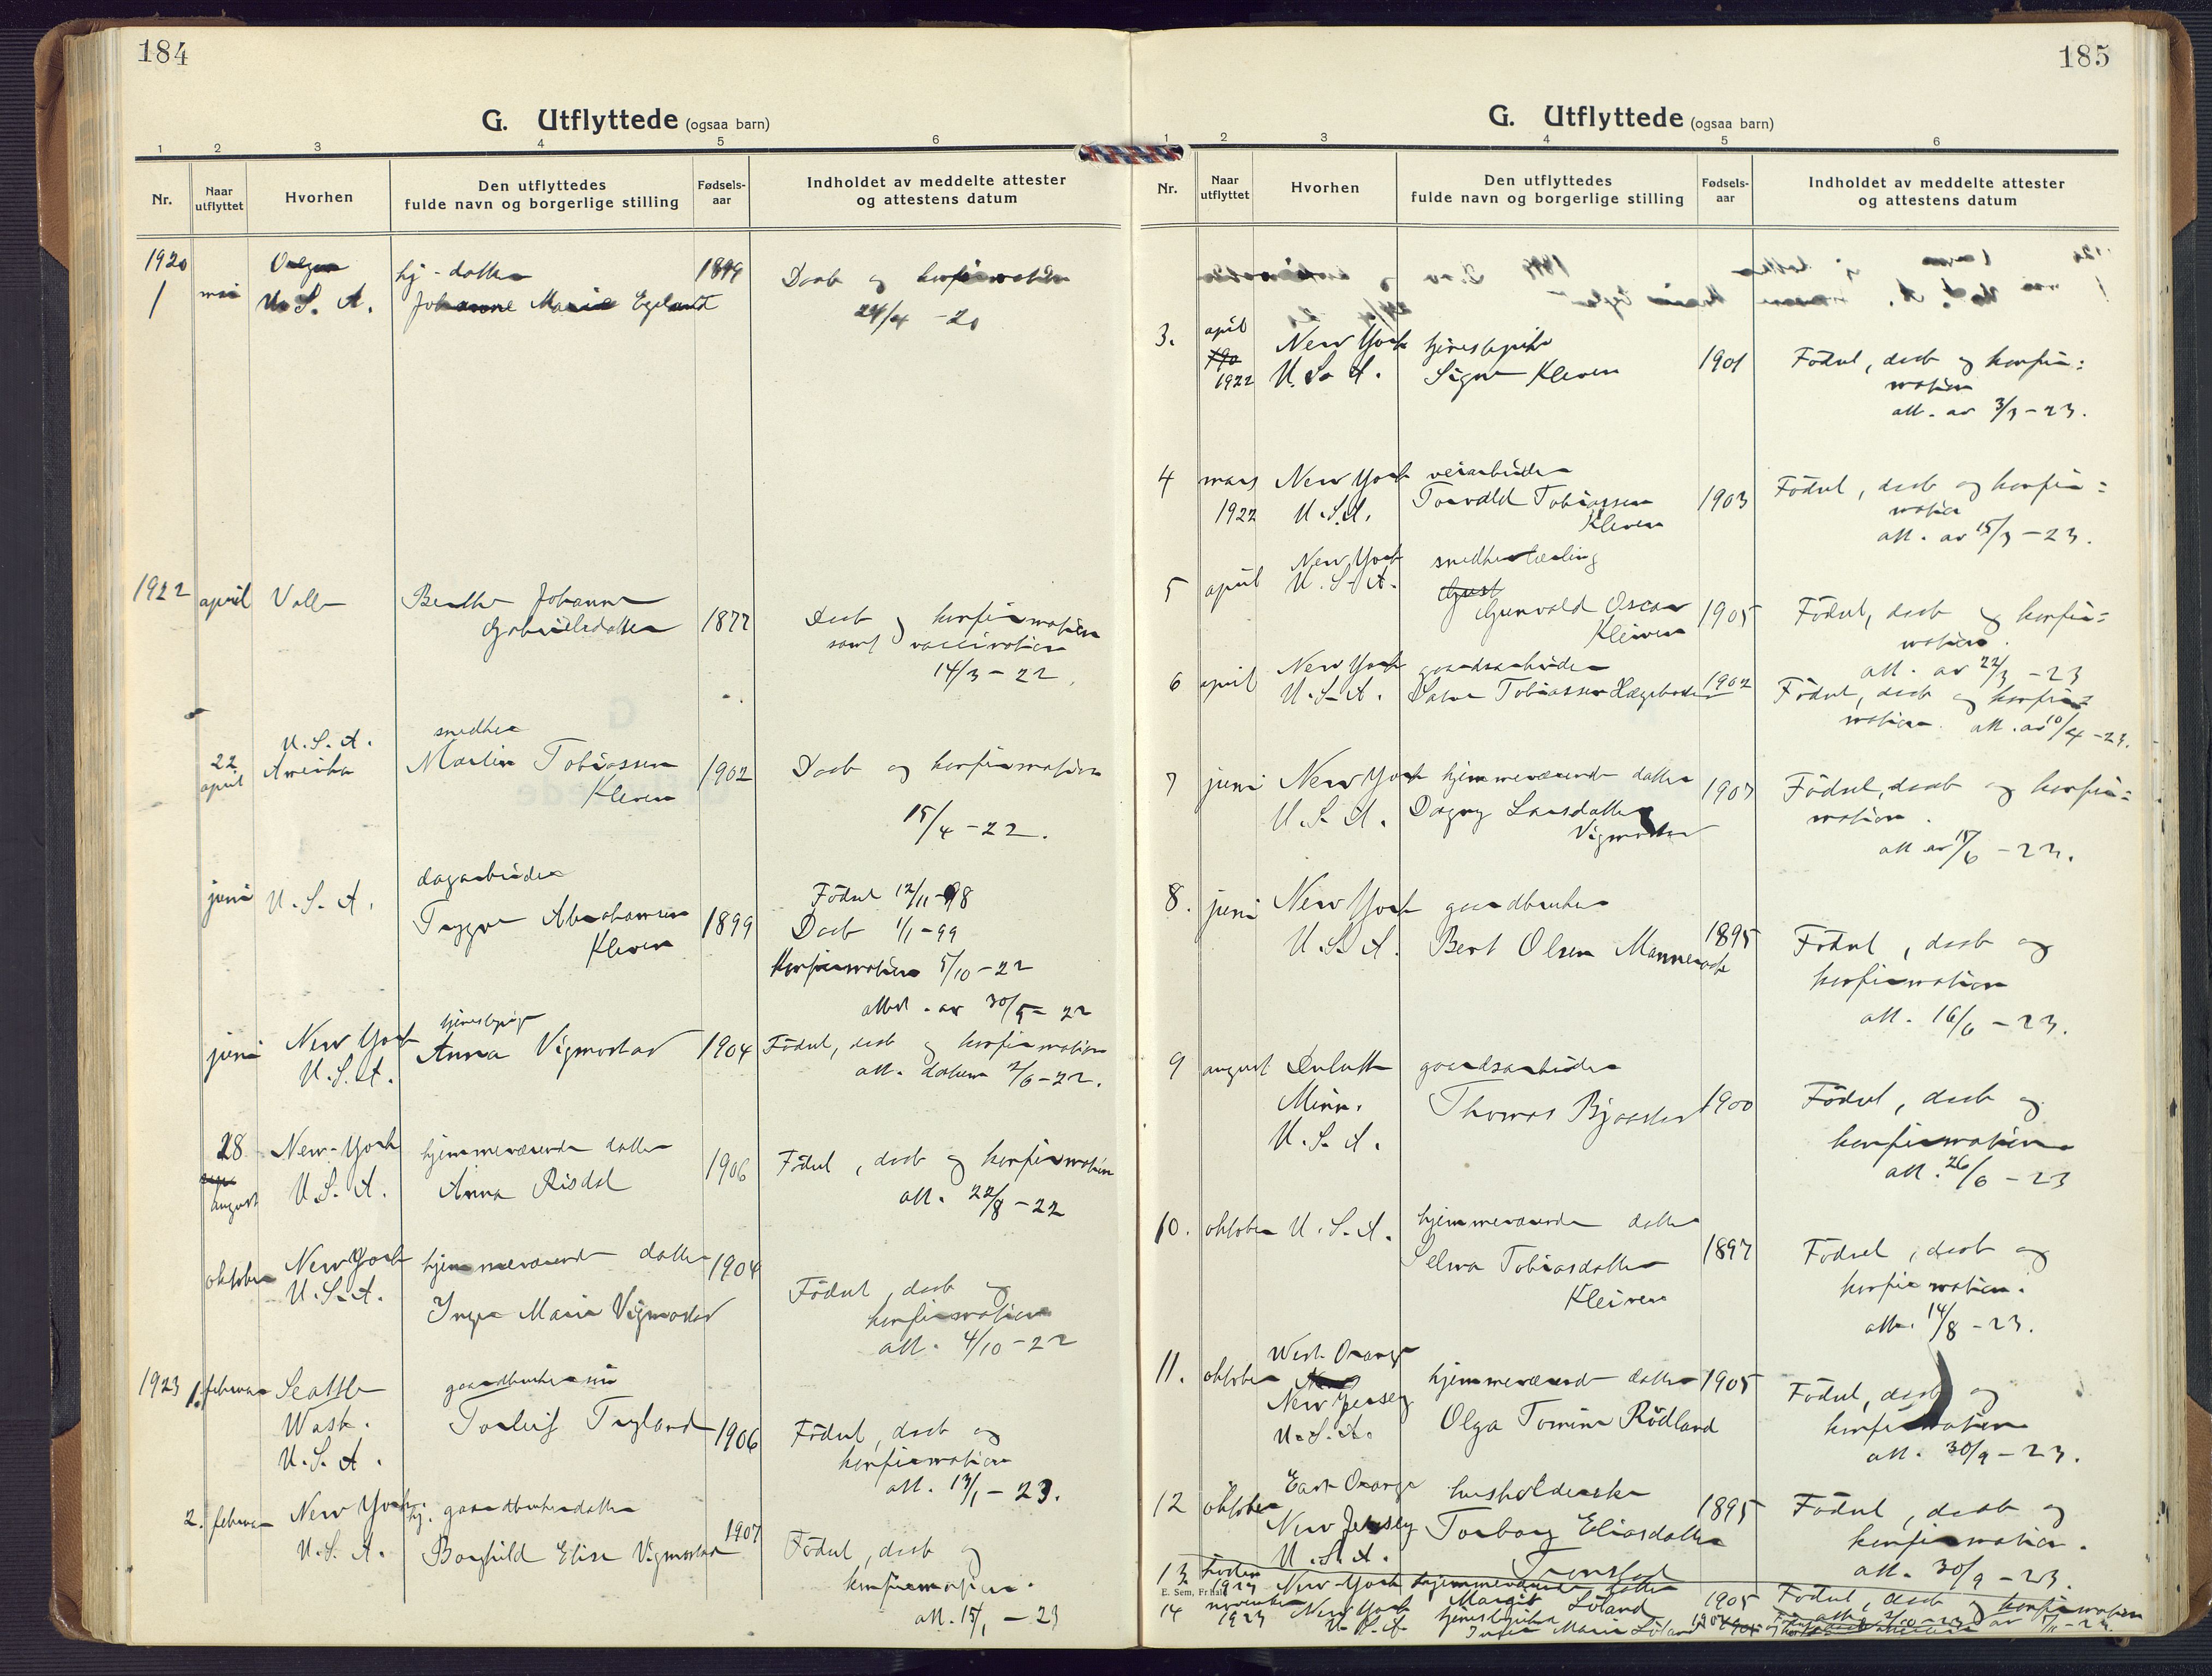 184
G. Utflyttede (ogsaa barn)
1 2 3 4 5 6
Nr.
Naar utflyttet
Hvorhen
Den utflyttedes fulde navn og borgerlige stilling
Fødsels-aar
Indholdet av meddelte attester og attestens datum
1920
1 mai Oregon
U. S. A.
hj-datter
Johanne Marie Egeland
1899
Daab og konfirmation
24/4 - 20
1922 april Valle
Berthe Johanne
Gabrielsdatter
1877
Daab og konfirmation
samt vaccination
14/3 - 22.
22 april
U.S.A.
Amerika
smedher
Martin Tobiassen
Kleven
1902
Daab og konfirmation
15/4 - 22.
juni U.S.A.
dagarbeider
Trygve Abrahamsen
Kleven
1899
Födsel 12/11-98
Daab 1/1-99
Konfirmation 5/10-22
attest. av 30/5- 22
juni New York
U.S.A.
tjenestepige
Anna Vigmostad
1904
Födsel, daab og konfirmation
att. datum 2/6-22.
28 august
New-York
U.S.A.
hjemmeværende datter
Anna Risdal
1906
Födsel, daab og konfirmation
att. 22/8 - 22
oktober New York
U.S.A.
hjemmeværende datter
Inga Marie Vigmostad
1904
Födsel, daab og
konfirmation
att. 4/10 - 22
1923 1. februar Seattle
Wash.
U.S.A.
Torleif Tryland
1906
Födsel, daab og
konfirmation
att. 13/1 - 23.
2. februar New York
U.S.A.
hj. gaardbrukerdatter
Borghild Elise Vigmostad
1907
Födsel, daab og
konfirmation.
att. 15/1 - 23
185
G. Utflyttede (ogsaa barn)
1 2 3 4 5 6
Nr.
Naar utflyttet
Hvorhen
Den utflyttedes fulde navn og borgerlige stilling
Fødsels-aar
Indholdet av meddelte attester og attestens datum
3. april
1922
New York
U. S. A.
tjenestepike
Signe Kleven
1901
Födsel, daab og konfir=
mation
att. av 3/3 - 23.
4 mars
1922
New York
U.S.A.
veiarbeider
Torvald Tobiassen
Kleven
1903
Födsel, daab og konfir=
mation
att. av 15/3 - 23.
5 april New York
U.S.A.
smedherlærling
Gunvald Oscar
Kleiven
1905
Födsel, daab og konfir=
mation.
att. av 22/3 - 23
6 april New York
U.S.A.
gaardsarbeider
Tobiassen Hægebostad
1902
Födsel, daab og konfir=
mation. att. av 10/4 - 23.
7 juni New York
U.S.A.
hjemmeværende datter
Dagny Larsdatter
Vigmostad
1907
Födsel, daab og konfir=
mation.
att av 15/6 - 23.
8. juni New York
U.S.A.
gaardbruker
Bert Olsen Mannerok
1895
Födsel, daab og
konfirmation
att. 16/6 - 23.
9 august Duluth
Minn.
U.S.A.
gaardsarbeider
Thomas Bjaastad
1900
Födsel, daab og
konfirmation
att. 26/6 - 23
10. oktober U.S.A.
hjemmeværende datter
Selma Tobiasdatter
Kleiven
1897
Födsel, daab og
konfirmation.
att. 14/8 - 23.
11. oktober West Orange
New Jersey
U.S.A.
hjemmeværende datter
Olga Tomine Rödland
1905
Födsel, daab og
konfirmation
att. 30/9 - 23.
12 oktober East Orange
New Jersey
U.S.A.
husholderske
Torborg Eliasdatter
Tronstad
1895
Födsel, daab og
konfirmation.
att. 30/9 - 23.
E. Sem, Fr.hald
13 1923 New-York
hjemmeværende datter
Margit Löland
1905
Födsel, daab og konfirmation
14 november
1923
New York
U.S.A.
tjenestepike
Marie Löland